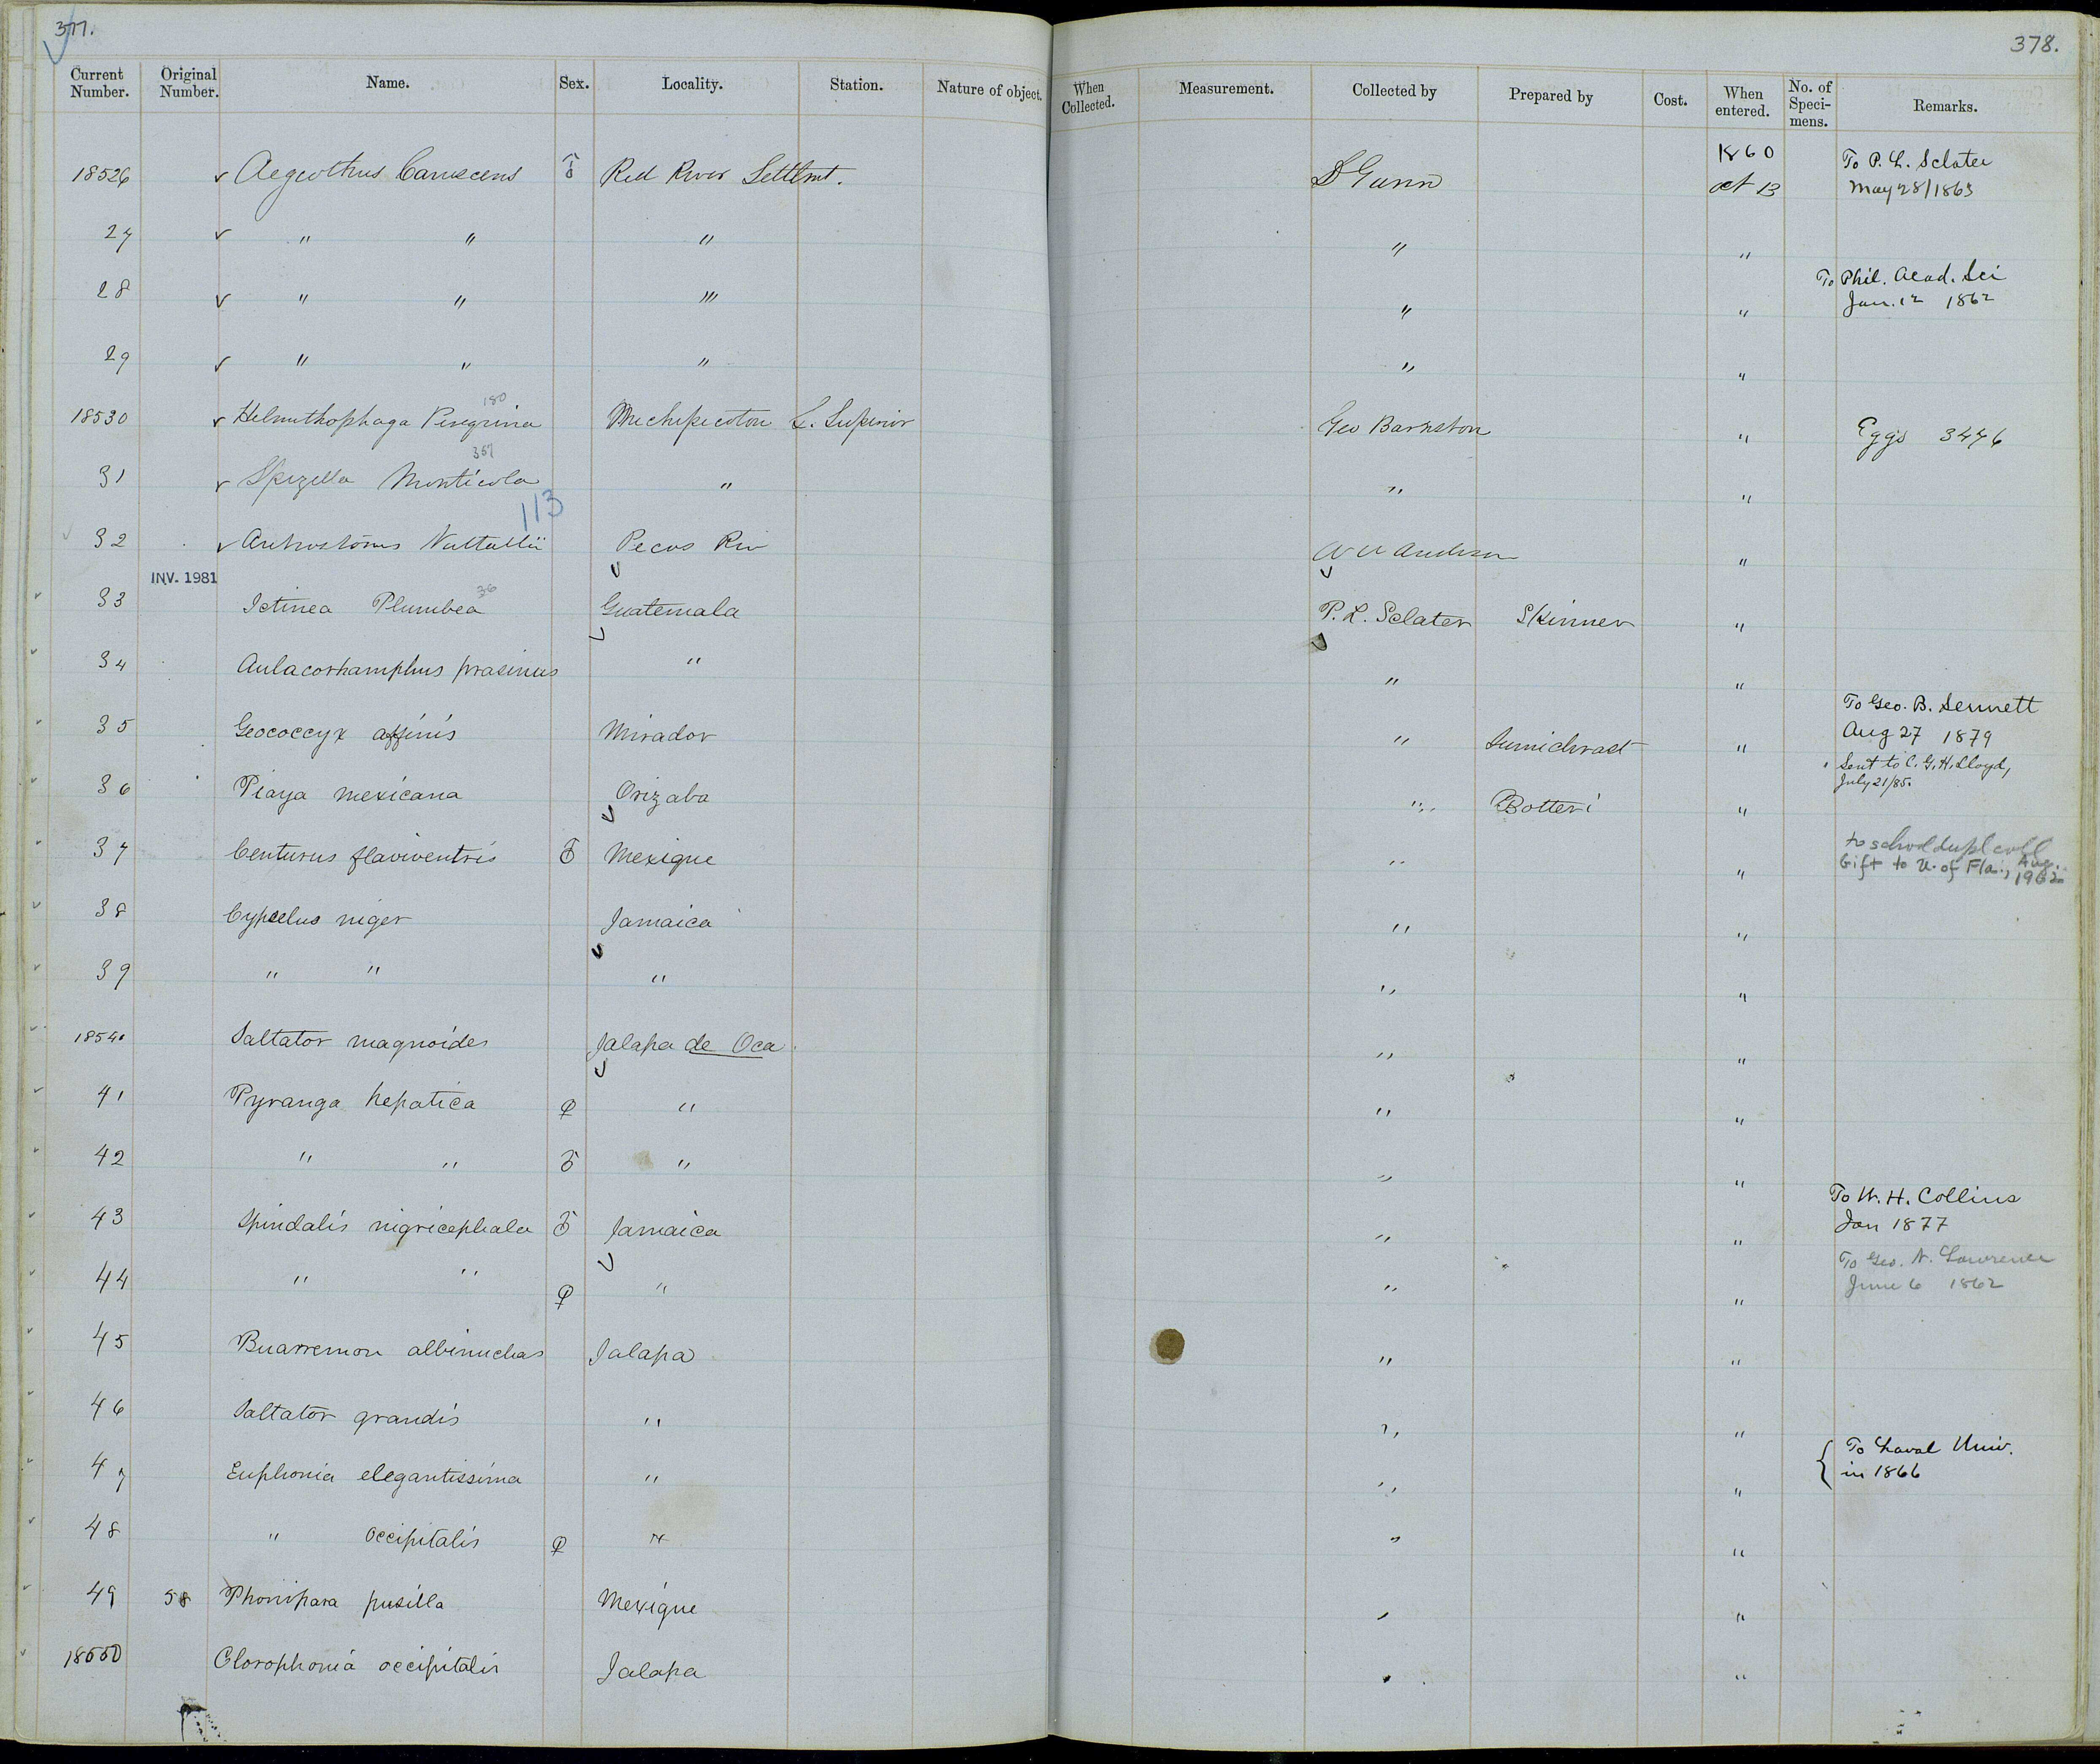 377.
378.
Current Number. Original Number. Name. Sex. Locality. Station. Nature of object. When Collected. Measurement. Collected by Prepared by Cost. When entered. No. of Speci- mens. Remarks.
18526 Aegiothus Canescens ♂ Red River Settlmt. D Gunn 1860 Oct 13 To P. L. Sclater May 28/1863
27 " " " " "
28 " " " " " To Phil. Acad. Sci Jan. 12 1862
29 " " " " "
18530 Helmithophaga Peregrina 180 Michipicoton L. Superior Geo Barnston " Eggs 3476
31 Spizella Monticola 357 " " "
113
32 Antrostomus Nuttallii Pecos Riv W W Anderson "
INV. 1981
33 Ictinea Plumbea 36 Guatemala P. L. Sclater Skinner "
34 Aulacorhamphus prasinus " " "
35 Geococcyx affinis Mirador " Sumichrast " To Geo. B. Sennett Aug 27 1879
36 Piaya mexicana Orizaba " Botteri " Sent to C. G. H. Lloyd, July 21/85.
37 Centurus flaviventris ♂ Mexique " " to school dupl coll Gift to U. of Fla., Aug. 1962
38 Cypselus niger Jamaica " "
39 " " " " "
18540 Saltator magnoides Jalapa de Oca " "
41 Pyranga hepatica ♀ " " "
42 " " ♂ " " "
43 Spindalis nigricephala ♂ Jamaica " " To W. H. Collins Jan 1877
44 " " ♀ " " " To Geo. N. Lawrence June 6 1862
45 Buarremon albinuchas Jalapa " "
46 Saltator grandis " " "
47 Euphonia elegantissima " " " To Laval Univ. in 1866
48 " occipitalis ♀ " " "
49 58 Phonipara pusilla Mexique " "
18550 Clorophonia occipitalis Jalapa " "